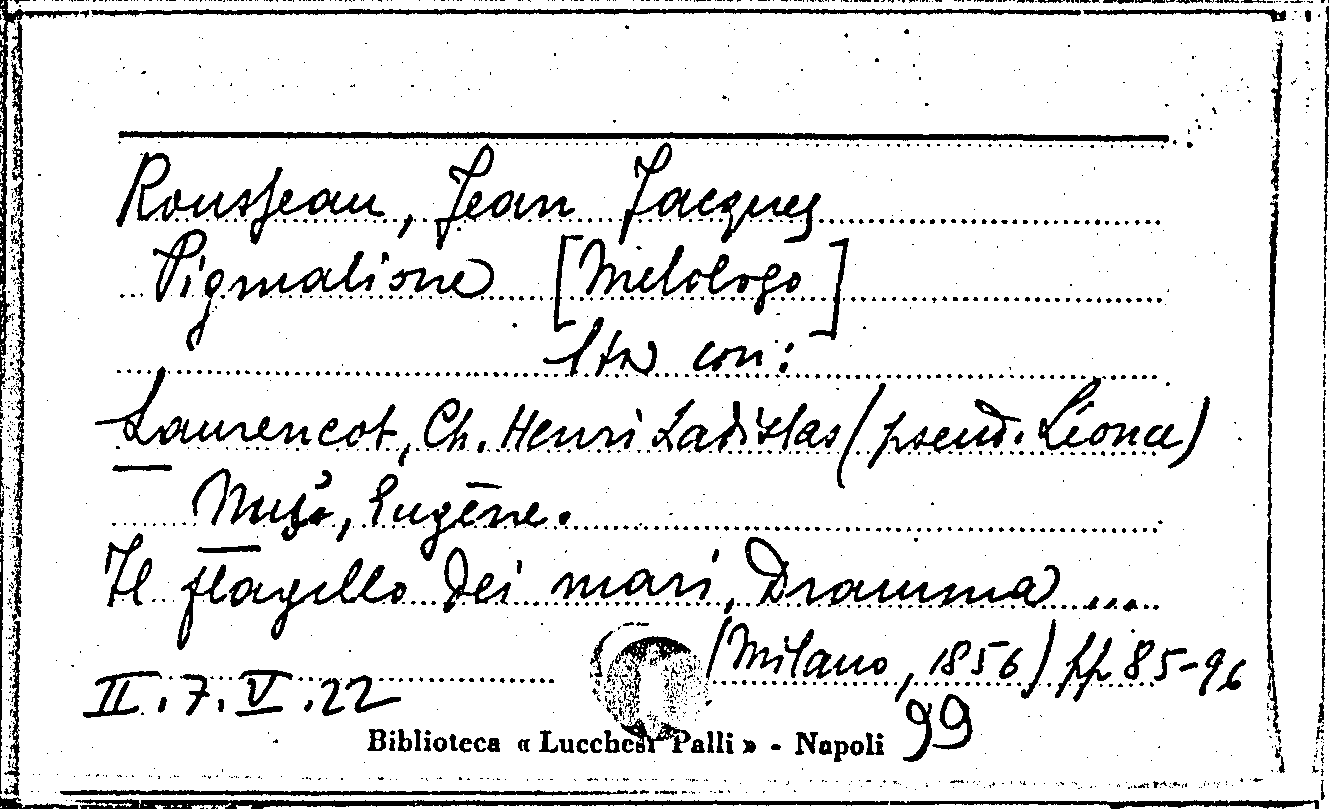 Rousseau, Jean Jacques
Pigmalione [Melologo]
Sta con:
Laurencot, Ch. Henri Ladislas (pseud. Léonce)
Nus, Eugène.
Il flagello dei mari, Dramma ...
(Milano, 1856) pp 85-96
II.7.V.22
99
Biblioteca « Lucchesi Palli » - Napoli